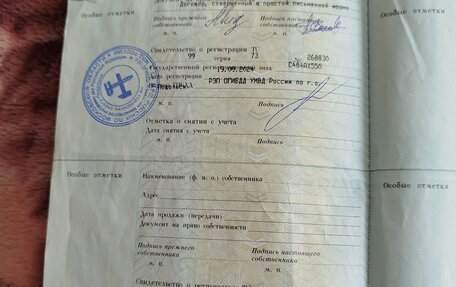 Договор, совершенный в простой письменной форме
Особые отметки
Подпись прежнего собственника
Подпись настоящего собственника
м. п.
Свидетельство о регистрации ТС
99 73 268830
серия
Государственный регистрационный знак С484АХ550
Дата регистрации 19.06.2024
РЭП ОГИБДД УМВД России по г.о.
Подольск
м. п.
Подпись
Отметка о снятии с учета
Дата снятия с учета
Подпись
м. п.
Особые отметки
Наименование (ф. и. о.) собственника
Особые отметки
Адрес
Дата продажи (передачи)
Документ на право собственности
Подпись прежнего собственника
Подпись настоящего собственника
м. п.
м. п.
Свидетельство о регистрации